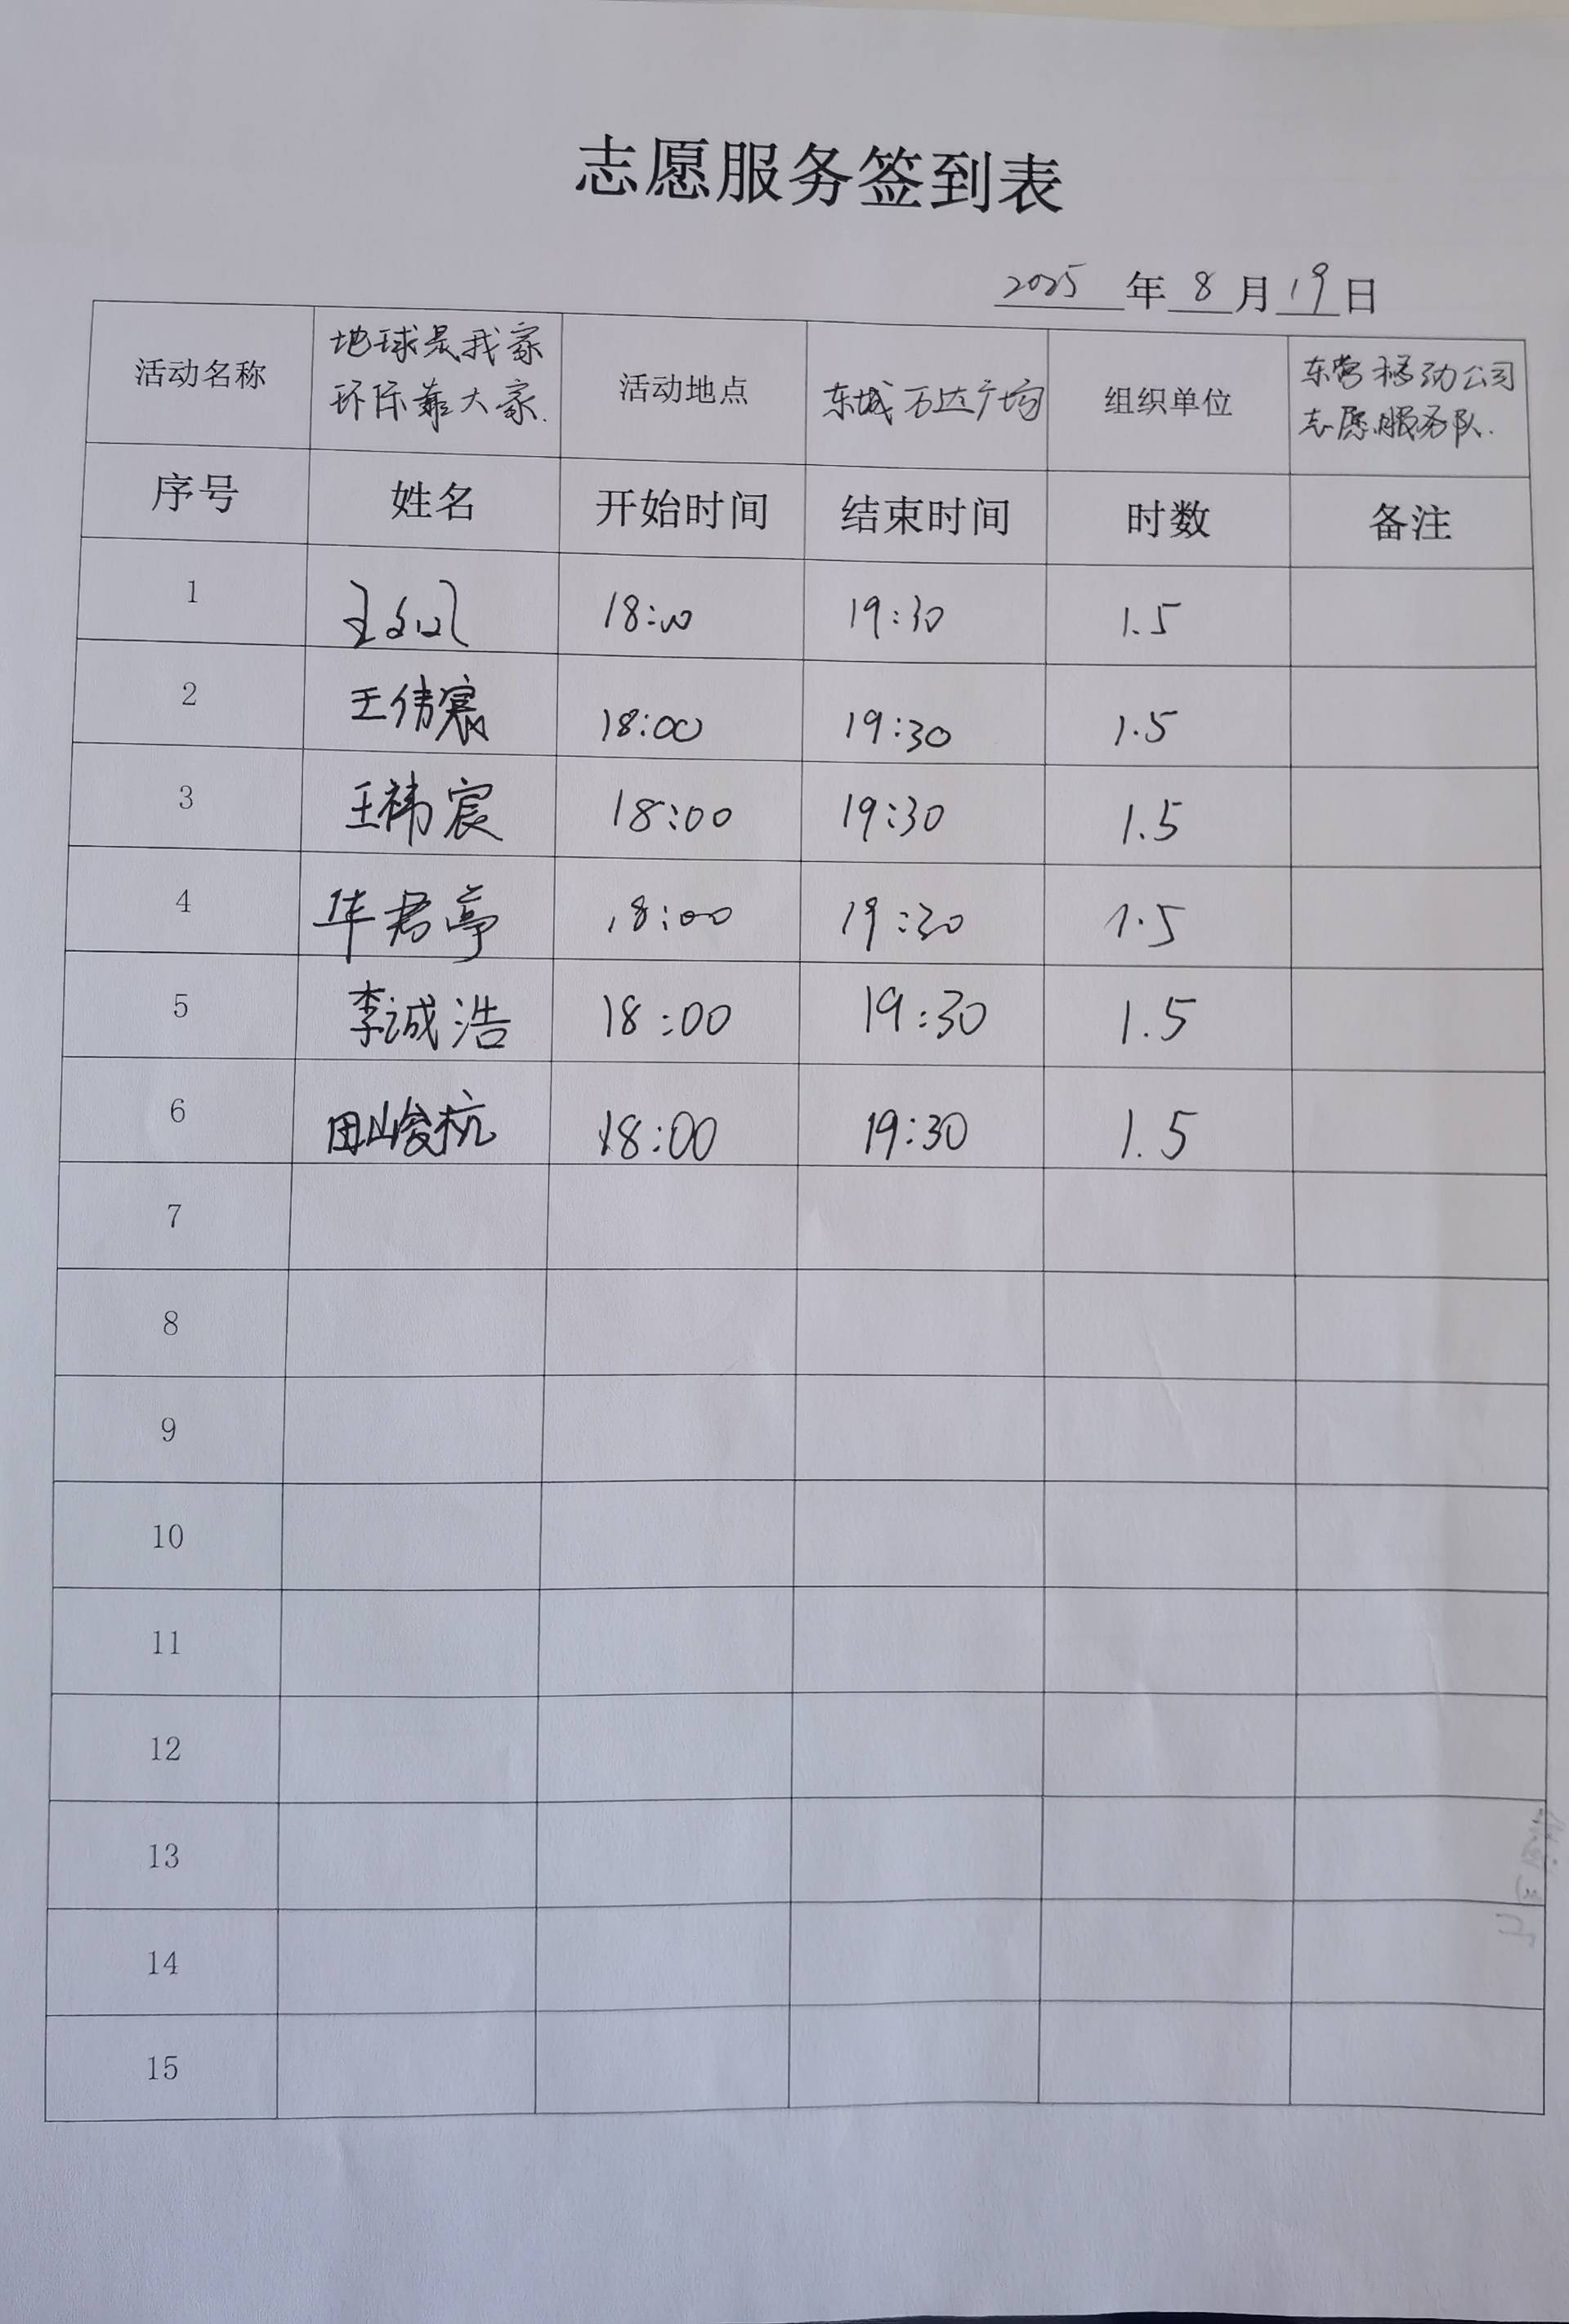 志愿服务签到表
2025 年 8 月 19 日
活动名称 地球是我家 环保靠大家. 活动地点 东城万达广场 组织单位 东营移动公司 志愿服务队.
序号 姓名 开始时间 结束时间 时数 备注
1 王 18:00 19:30 1.5
2 王伟寰 18:00 19:30 1.5
3 王祎宸 18:00 19:30 1.5
4 华君亭 18:00 19:30 1.5
5 李诚浩 18:00 19:30 1.5
6 田峻杭 18:00 19:30 1.5
7
8
9
10
11
12
13
14
15